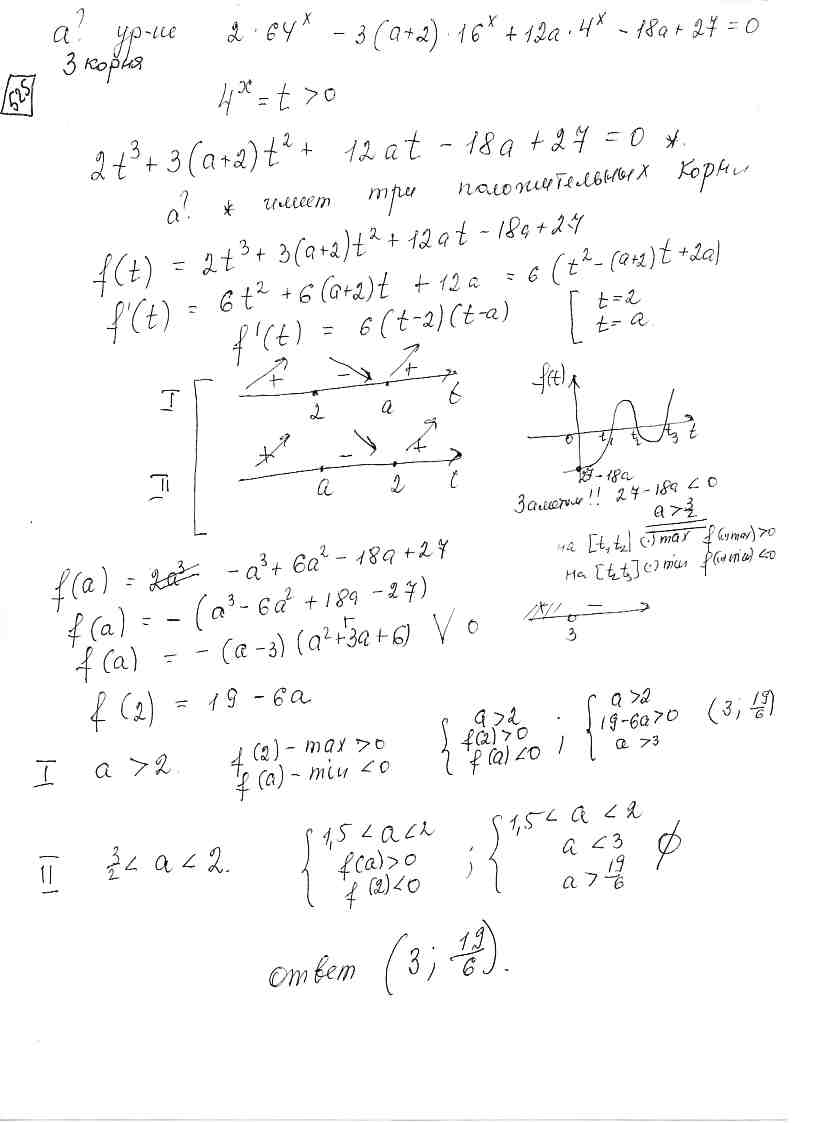 a? ур-ие 2·64^x − 3(a+2)·16^x + 12a·4^x − 18a + 27 = 0
3 корня
525
4^x = t > 0
2t³ + 3(a+2)t² + 12at − 18a + 27 = 0 *.
a? * имеет три положительных корни
f(t) = 2t³ + 3(a+2)t² + 12at − 18a + 27
f'(t) = 6t² + 6(a+2)t + 12a = 6(t² − (a+2)t + 2a)
f'(t) = 6(t−2)(t−a) [ t=2
t=a
I + − + 2 a t
II + − + a 2 t
f(t) 0 t₁ t₂ t₃ t
27−18a
Заметим!! 27−18a < 0
a > 3/2
на [t₁,t₂] (·) max f(·max) > 0
на [t₂t₃] (·) min f(·min) < 0
f(a) = 2a³ − a³ + 6a² − 18a + 27
f(a) = −(a³ − 6a² + 18a − 27)
f(a) = −(a−3)(a²+3a+6) V 0
− 3
f(2) = 19 − 6a
I a > 2. f(2) − max > 0
f(a) − min < 0
{ a>2
f(2)>0
f(a)<0 ;
{ a>2
19−6a>0
a>3
(3; 19/6)
II 3/2 < a < 2.
{ 1,5 < a < 2
f(a)>0
f(2)<0 ;
{ 1,5 < a < 2
a < 3
a > 19/6
∅
ответ (3; 19/6).